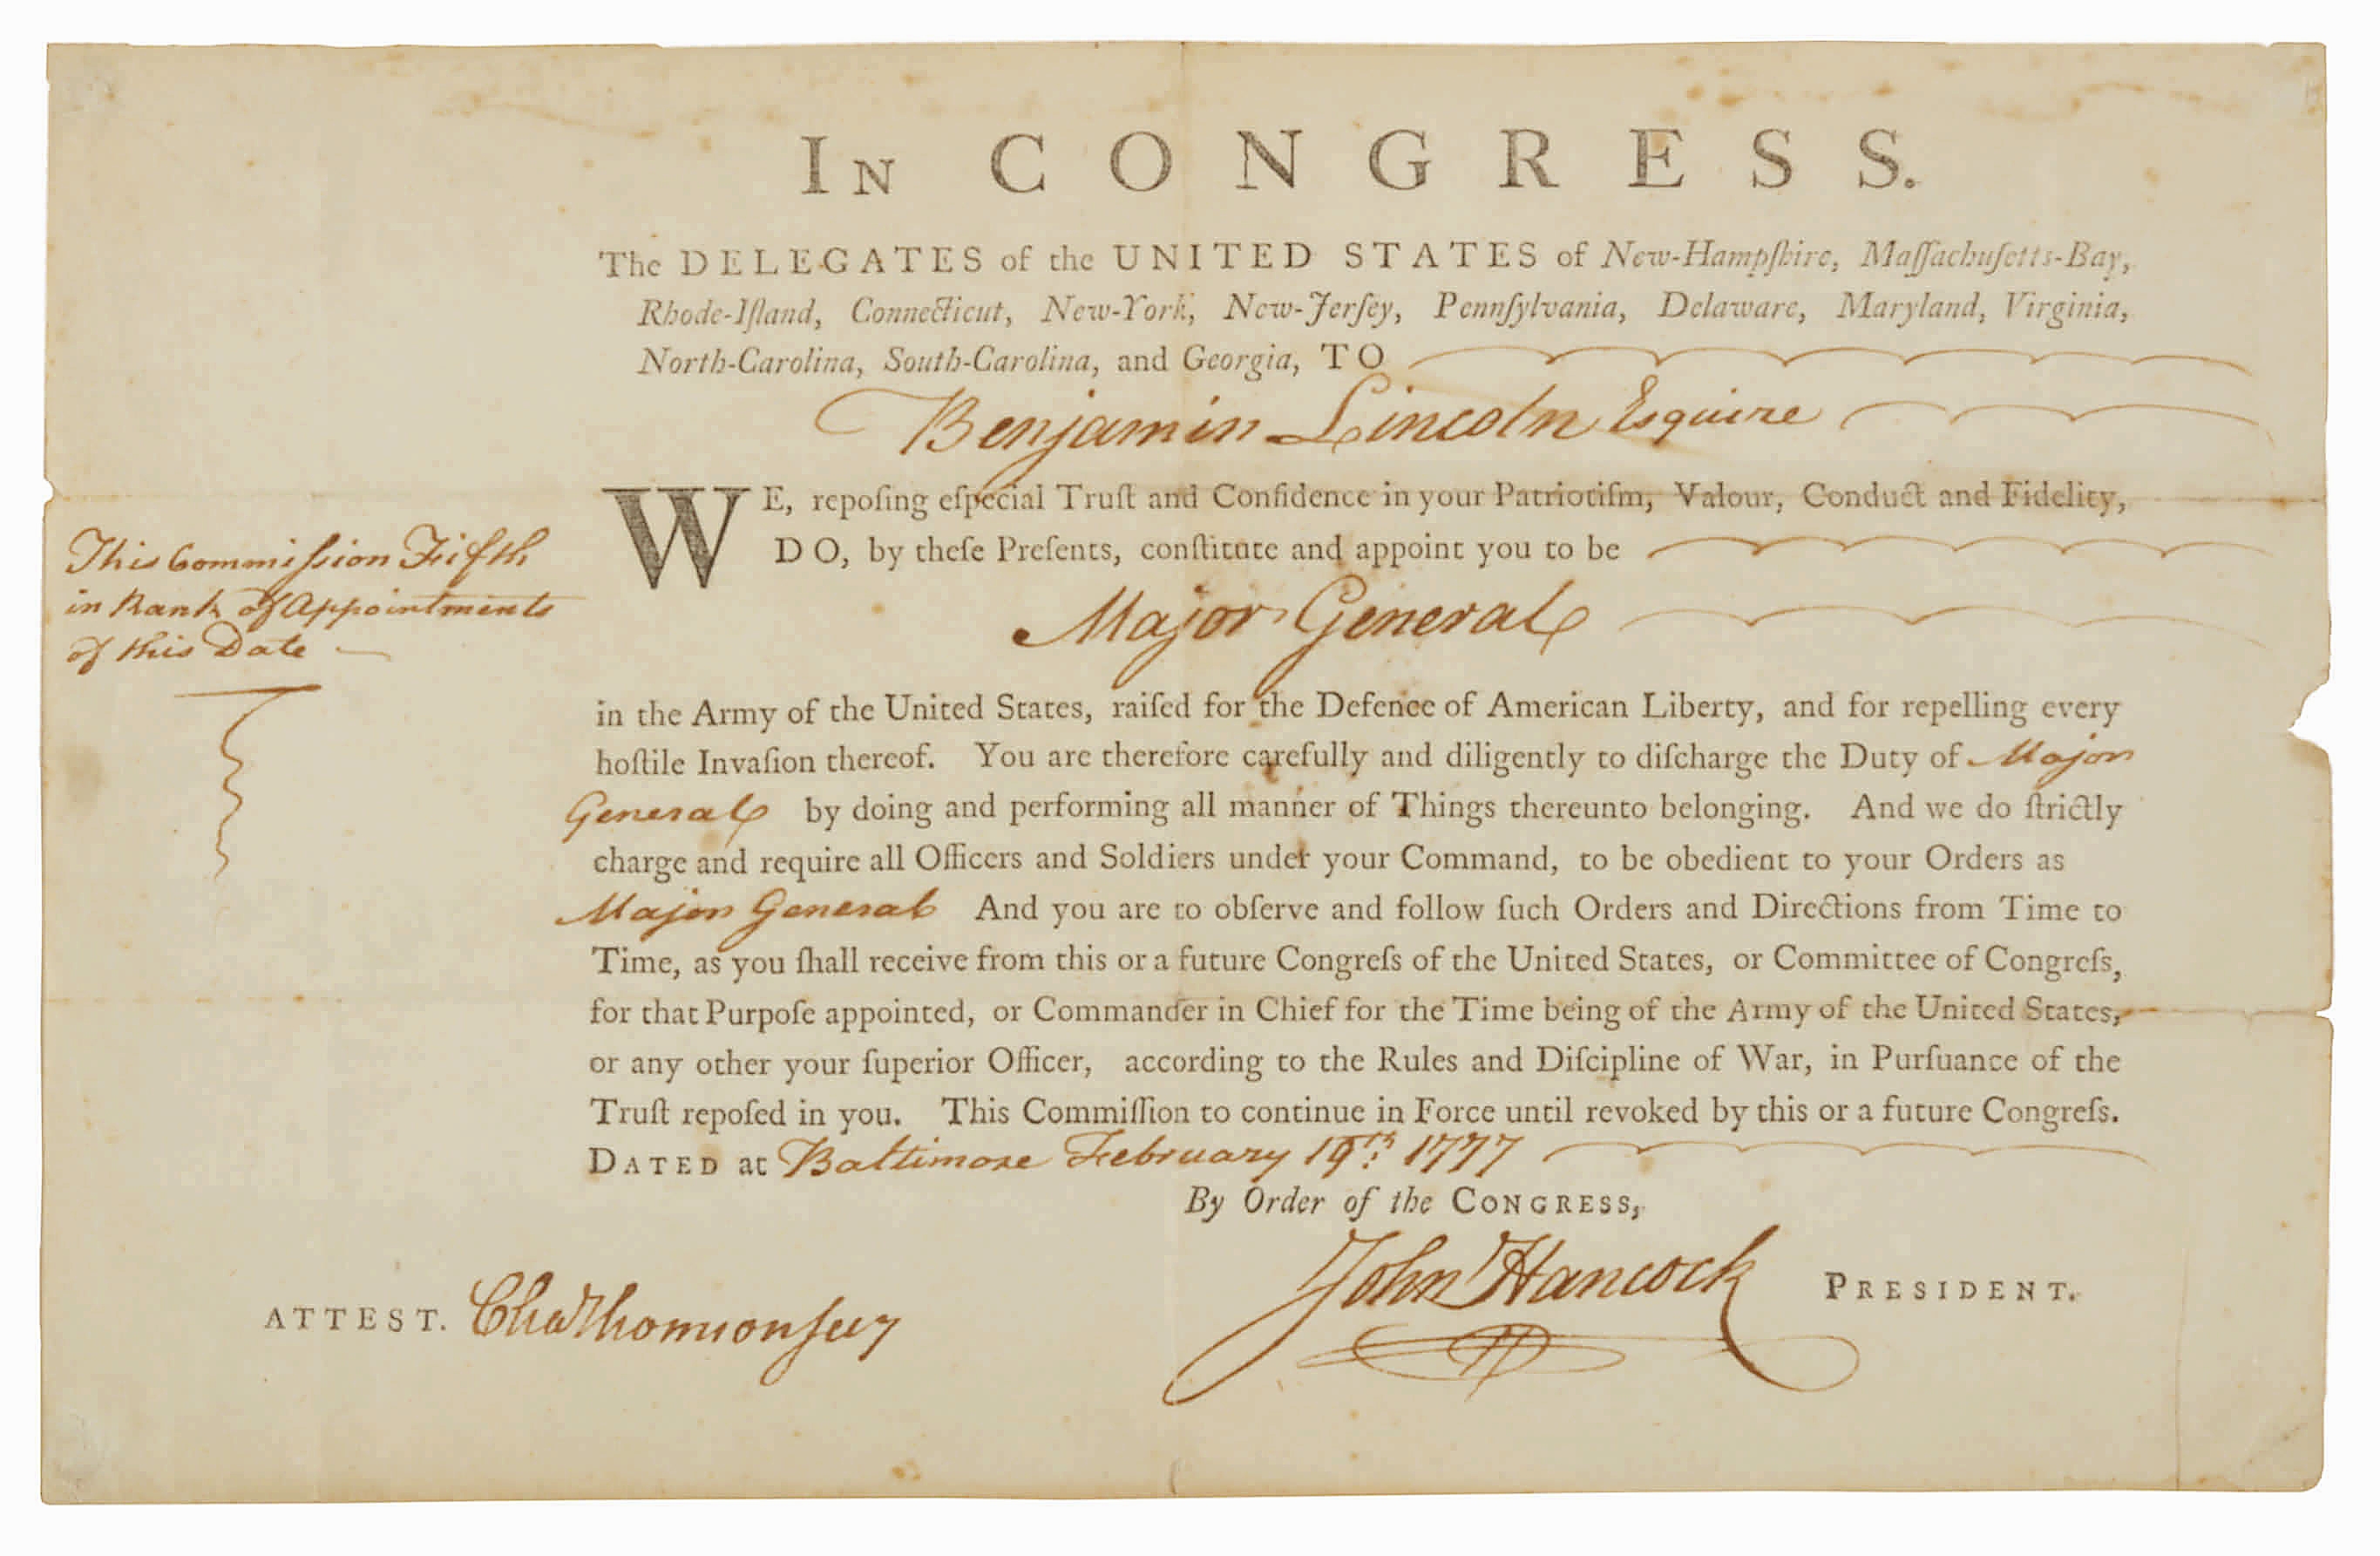 In CONGRESS.
The DELEGATES of the UNITED STATES of New-Hampſhire, Maſſachuſetts-Bay,
Rhode-Iſland, Connecticut, New-York, New-Jerſey, Pennſylvania, Delaware, Maryland, Virginia,
North-Carolina, South-Carolina, and Georgia, TO
Benjamin Lincoln Esquire
WE, repoſing eſpecial Truſt and Confidence in your Patriotiſm, Valour, Conduct and Fidelity,
DO, by theſe Preſents, conſtitute and appoint you to be
Major General
This Commiſsion Fifth
in Rank of Appointments
of this Date
in the Army of the United States, raiſed for the Defence of American Liberty, and for repelling every
hoſtile Invaſion thereof. You are therefore carefully and diligently to diſcharge the Duty of Major
General by doing and performing all manner of Things thereunto belonging. And we do ſtrictly
charge and require all Officers and Soldiers under your Command, to be obedient to your Orders as
Major General And you are to obſerve and follow ſuch Orders and Directions from Time to
Time, as you ſhall receive from this or a future Congreſs of the United States, or Committee of Congreſs,
for that Purpoſe appointed, or Commander in Chief for the Time being of the Army of the United States,
or any other your ſuperior Officer, according to the Rules and Diſcipline of War, in Purſuance of the
Truſt repoſed in you. This Commiſſion to continue in Force until revoked by this or a future Congreſs.
DATED at Baltimore February 19th 1777
By Order of the CONGRESS,
John Hancock PRESIDENT.
ATTEST. Cha Thomson secy